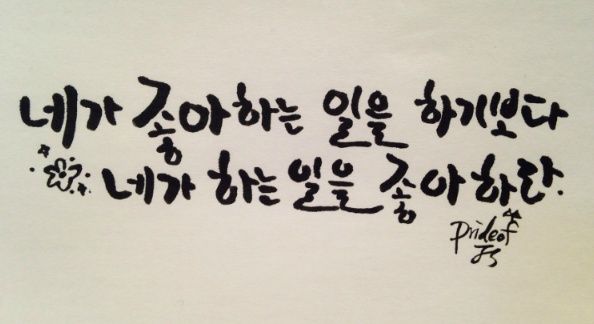 네가 좋아하는 일을 하기보다
네가 하는 일을 좋아하라.
Prideof
JS